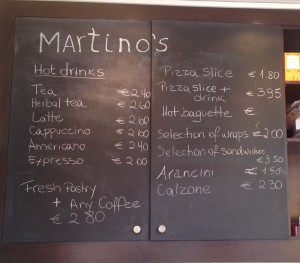 Martino's
Hot drinks
Tea € 2.40
Herbal tea € 2.60
Latte € 2.60
Cappuccino € 2.60
Americano € 2.40
Expresso € 2.00
Fresh Pastry
+ Any Coffee
€ 2.80
Pizza slice € 1.80
Pizza slice + € 3.95
drink
Hot baguette €
Selection of wraps €2.00
Selection of sandwiches
€3.50
Arancini € 1.50
Calzone € 2.30